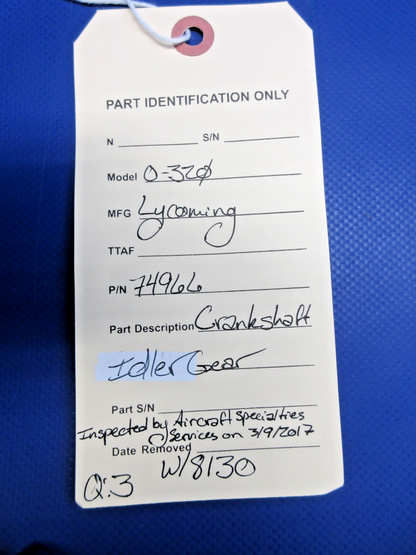 PART IDENTIFICATION ONLY
N S/N
Model O-320
MFG Lycoming
TTAF
P/N 74966
Part Description Crankshaft
Idler Gear
Part S/N
Inspected by Aircraft Specialties
Services on 3/9/2017
Date Removed
W/8130
Q:3